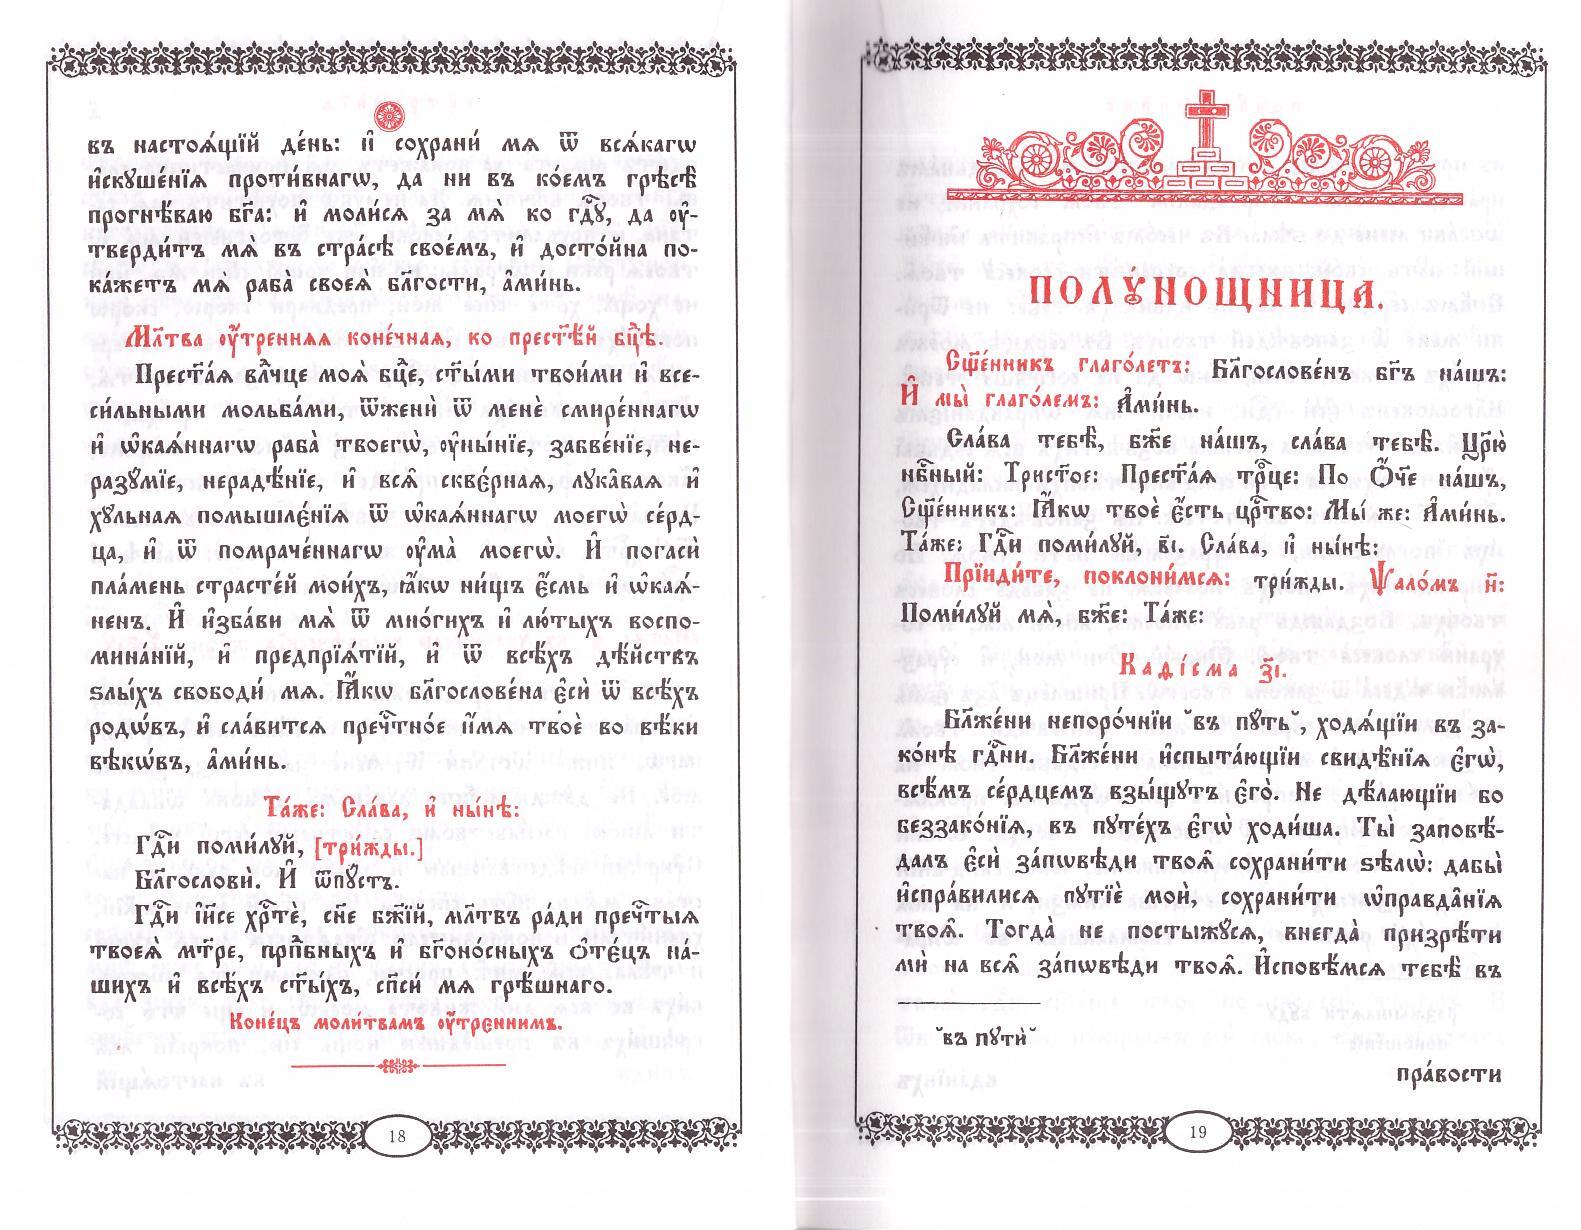 въ настоѧ́щїй де́нь: и҆ сохрани́ мѧ ѿ всѧ́кагѡ
и҆скꙋше́нїѧ проти́внагѡ, да ни въ ко́емъ грѣсѣ̀
прогнѣ́ваю бг҃а: и҆ моли́сѧ за мѧ̀ ко гдⷭ҇ꙋ, да ᲂу҆-
тверди́тъ мѧ̀ въ стра́сѣ свое́мъ, и҆ досто́йна по-
ка́жетъ мѧ раба̀ своеѧ̀ бл҃гости, а҆ми́нь.
Мл҃тва ᲂу҆́треннѧѧ коне́чнаѧ, ко прест҃ѣ́й бцⷣѣ.
Прест҃а́ѧ влⷣчце моѧ̀ бцⷣе, ст҃ы́ми твои́ми и҆ все-
си́льными мольба́ми, ѿженѝ ѿ менє̀ смире́ннагѡ
и҆ ѡ҆каѧ́ннагѡ раба̀ твоегѡ̀, ᲂу҆ны́нїе, забве́нїе, не-
разꙋ́мїе, нерадѣ́нїе, и҆ всѧ̑ сквє́рнаѧ, лꙋка̑ваѧ и҆
хꙋ́льнаѧ помышлє́нїѧ ѿ ѡ҆каѧ́ннагѡ моегѡ̀ се́рд-
ца, и҆ ѿ помраче́ннагѡ ᲂу҆ма̀ моегѡ̀. И҆ погасѝ
пла́мень страсте́й мои́хъ, ꙗ҆́кѡ ни́щъ є҆́смь и҆ ѡ҆каѧ́-
ненъ. И҆ и҆зба́ви мѧ̀ ѿ мно́гихъ и҆ лю́тыхъ воспо-
мина́нїй, и҆ предпрїѧ́тїй, и҆ ѿ всѣ́хъ дѣ́йствъ
ѕлы́хъ свободи́ мѧ. Ꙗ҆́кѡ бл҃гослове́на є҆сѝ ѿ всѣ́хъ
родѡ́въ, и҆ сла́витсѧ пречⷭ҇тно́е и҆́мѧ твоѐ во вѣ́ки
вѣкѡ́въ, а҆ми́нь.
Та́же: Сла́ва, и҆ ны́нѣ:
Гдⷭ҇и поми́лꙋй, [три́жды.]
Бл҃гословѝ. И҆ ѿпꙋ́стъ.
Гдⷭ҇и і҆и҃се хрⷭ҇тѐ, сн҃е бж҃їй, мл҃твъ ра́ди пречⷭ҇тыѧ
твоеѧ̀ мт҃ре, прпⷣбныхъ и҆ бг҃оно́сныхъ ѻ҆те́цъ на́-
шихъ и҆ всѣ́хъ ст҃ы́хъ, сп҃си́ мѧ грѣ́шнаго.
Коне́цъ моли́твамъ ᲂу҆́трєннимъ.
18
ПОЛꙊНОЩНИЦА.
Сщ҃е́нникъ глаго́летъ: Бл҃гослове́нъ бг҃ъ на́шъ:
И҆ мы̀ глаго́лемъ: А҆ми́нь.
Сла́ва тебѣ̀, бж҃е на́шъ, сла́ва тебѣ̀. Цр҃ю̀
нбⷭ҇ный: Трист҃о́е: Прест҃а́ѧ трⷪ҇це: По Ѻ҆́ч҃е на́шъ,
Сщ҃е́нникъ: Ꙗ҆́кѡ твоѐ є҆́сть црⷭ҇тво: Мы́ же: А҆ми́нь.
Та́же: Гдⷭ҇и поми́лꙋй, в҃і. Сла́ва, и҆ ны́нѣ:
Прїиди́те, поклони́мсѧ: три́жды. Ѱало́мъ н҃:
Поми́лꙋй мѧ̀, бж҃е: Та́же:
Каѳі́сма з҃і.
Бл҃же́ни непоро́чнїи ˘въ пꙋ́ть˘ ходѧ́щїи въ за-
ко́нѣ гдⷭ҇ни. Бл҃же́ни и҆спыта́ющїи свидѣ̑нїѧ є҆гѡ̀,
всѣ́мъ се́рдцемъ взы́щꙋтъ є҆го̀. Не дѣ́лающїи во
беззако́нїѧ, въ пꙋте́хъ є҆гѡ̀ ходи́ша. Ты̀ заповѣ́-
далъ є҆сѝ за́пѡвѣди твоѧ̑ сохрани́ти ѕѣлѡ̀: дабы̀
и҆спра́вилисѧ пꙋтїѐ моѝ, сохрани́ти ѡ҆правда̑нїѧ
твоѧ̑. Тогда̀ не постыжꙋ́сѧ, внегда̀ призрѣ́ти
мѝ на всѧ̑ за́пѡвѣди твоѧ̑. И҆сповѣ́мсѧ тебѣ̀ въ
˘въ пꙋтѝ˘
пра́вости
19